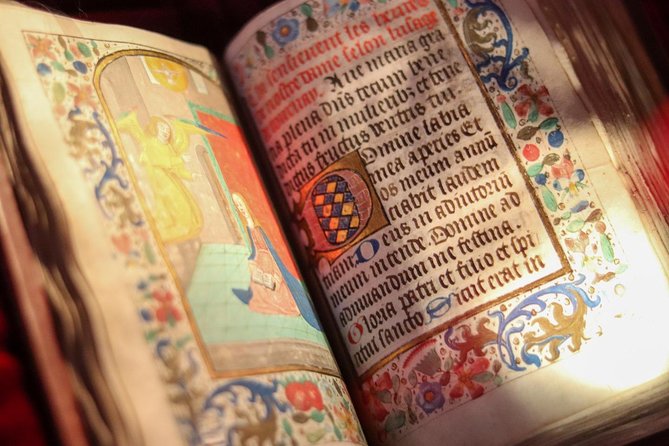 sensieuent les heures
nostre dame selon lusage
Aue maria gra
cia plena dn̄s tecum bene
dicta tu in mulieribz et bene
dictus fructus ventris tui
Domine labia
mea aperies Et
os meum annū
ciabit laudem
tuam Deus in adiutoriū
meum intende. Domine ad
adiuuandum me festina.
Gloria patri et filio et spi
ritui sancto Sicut erat in